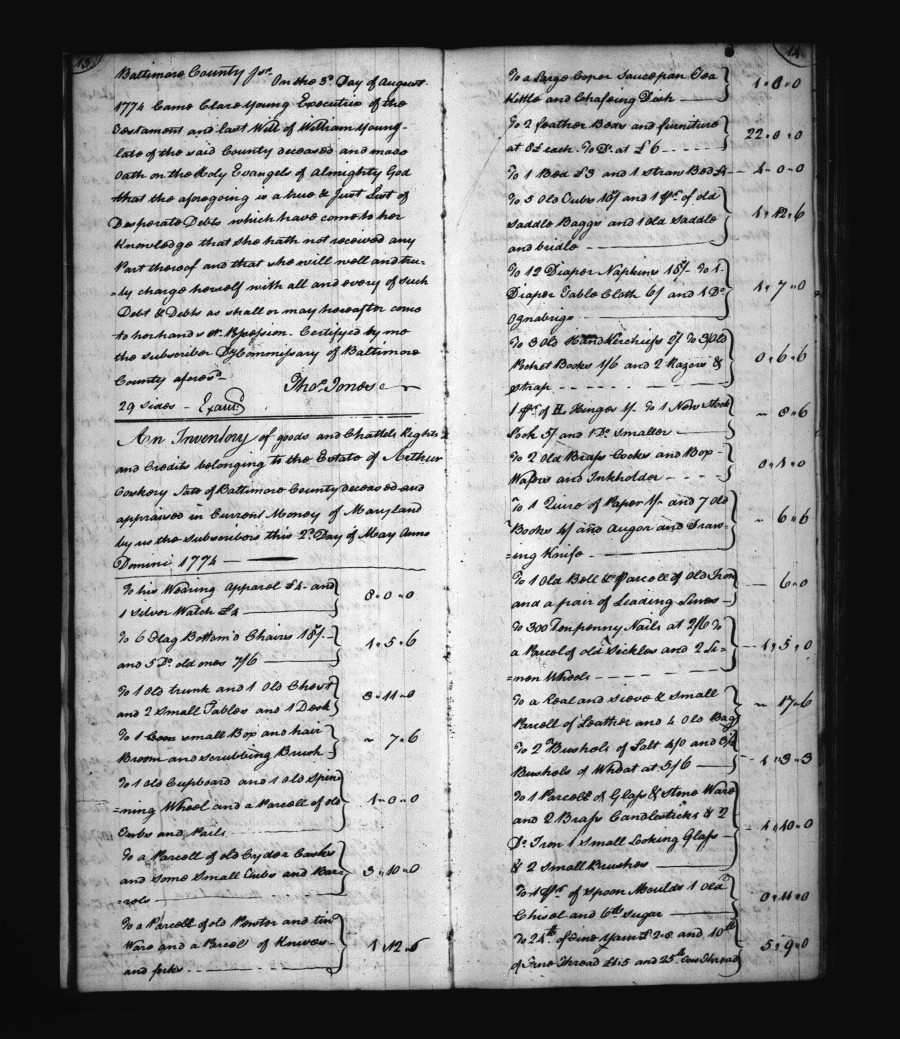 13.
Baltimore County Jsr.
On the 3d. Day of August
1774 Came Clare Young Executrix of the
Testament and last Will of William Young
late of the said County deceased and made
Oath on the Holy Evangels of Almighty God
that the aforegoing is a true & Just List of
Desperate Debts which have come to her
Knowledge that she hath not received any
Part thereof and that she will well and tru=
=ly charge herself with all and every of such
Debt & Debts as shall or may hereafter come
to her hands or Possession. Certified by me
the subscriber Dy Commissary of Baltimore
County aforesd.
Thos. Jones
29 sides - Examd.
An Inventory of goods and Chattels Rights
and Credits belonging to the Estate of Arthur
Coskery late of Baltimore County deceased and
appraised in Current Money of Maryland
by us the subscribers this 2d. Day of May Anno
Domini 1774
To his Wearing Apparel £4 - and
1 Silver Watch £4 8 " 0 " 0
To 6 Flag Bottom'd Chairs 18/-
and 5 Do. old ones 7/6 1 " 5 " 6
To 1 Old trunk and 1 Old Chest
and 2 Small Tables and 1 Desk 3 " 11 " 0
To 1 small Box and hair
Broom and scrubbing Brush " 7 " 6
To 1 old Cupboard and 1 old Spin
=ning Wheel and a Parcell of old
Tubs and Pails 1 " 0 " 0
To a Parcell of old Cyder Casks
and some Small Tubs and Bar=
=rels 3 " 10 " 0
To a Parcell of old Pewter and tin
Ware and a Parcel of Knives
and forks 1 " 12 " 6
14.
To a Large Coper Saucepan Tea
Kittle and Chafeing Dish 1 " 0 " 0
To 2 feather Beds and furniture
at 8£ each. To Do. at £6 22 " 0 " 0
To 1 Bed £3 and 1 straw Bed £1 4 " 0 " 0
To 5 Old Tubs 15/ and 1 Pr. of old
Saddle Baggs and 1 Old Saddle
and bridle 1 " 12 " 6
To 12 Diaper Napkins 15/- To 1
Diaper Table Cloth 6/ and 1 Do.
Oznabrigs 1 " 7 " 0
To 3 Old Handkerchiefs 2/ To 3 Old
Pocket Books 1/6 and 2 Razors &
Strap 0 " 6 " 6
1 Pr. of H Hinges 1/- To 1 New Stock
Lock 5/ and 1 Do. smaller " 8 " 6
To 2 Old Brass Cocks and Box
Wafers and Inkholder 0 " 1 " 0
To 1 Quire of Paper 1/- and 7 old
Books 4/ and Augor and Draw=
=ing Knife " 6 " 6
To 1 Old Bell & Parcell of Old Iron
and a pair of Leading Lines " 6 " 0
To 300 Tenpenny Nails at 2/6 To
a Parcel of old Sickles and 2 Li=
=nen Wheels 1 " 5 " 0
To a Real and sieve & small
Parcell of Leather and 4 Old Bags " 17 " 6
To 2 Bushels of Salt 4/0 and 3½
Bushels of Wheat at 5/6 1 " 3 " 3
To 1 Parcell of Glass & Stone Ware
and 2 Brass Candlesticks & 2
Do. Iron 1 Small Looking Glass
& 2 Small Brushes 1 " 10 " 0
To 1 Pr. of Spoon Moulds 1 Old
Chisel and 6lb sugar 0 " 11 " 0
To 24lb. of fine Yarn £2.8 and 10lb
of Fine Thread £1.5 and 25lb. Tow Thread 5 " 9 " 0